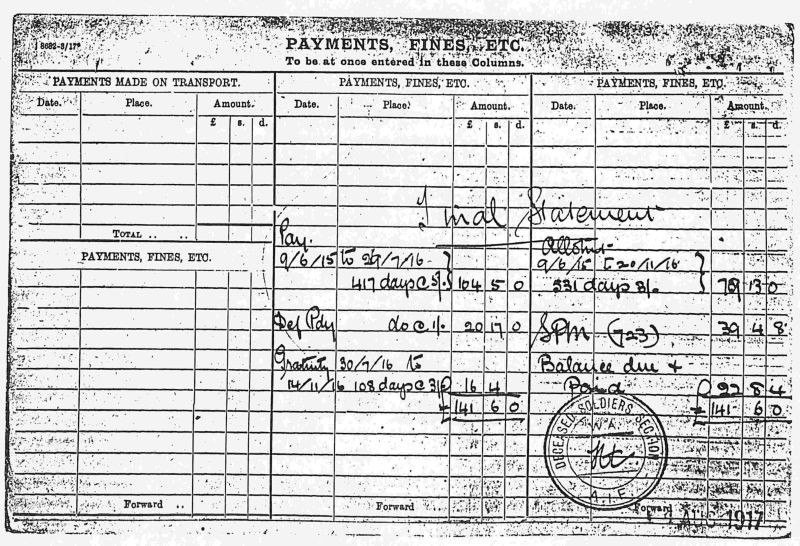 8682-8/17*
PAYMENTS, FINES, ETC.
To be at once entered in these Columns.
PAYMENTS MADE ON TRANSPORT.
Date. Place. Amount.
£ s. d.
TOTAL .. ..
PAYMENTS, FINES, ETC.
Forward ..
PAYMENTS, FINES, ETC.
Date. Place. Amount.
£ s. d.
Final Statement
Pay.
9/6/15 to 29/7/16
417 days @ 5/. 104 5 0
Def Pay do @ 1/. 20 17 0
Gratuity 30/7/16 to
14/11/16 108 days @ 3/. 16 4
= 141 6 0
Forward
PAYMENTS, FINES, ETC.
Date. Place. Amount.
£ s. d.
Allotmt
9/6/15 to 20/11/16
531 days 3/. 79 13 0
SPM (723) 39 4 8
Balance due +
Paid 22 8 4
= 141 6 0
DECEASED SOLDIERS SECTION
W.A.
A.I.F.
Forward
AUG 1917